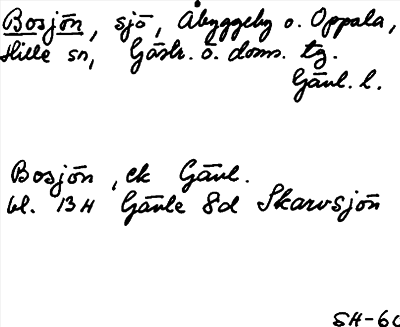 Bosjön, sjö, Åbyggeby o. Oppala,
Hille sn, Gästr. ö. doms. tg.
Gävl. l.
Bosjön, ek Gävl.
bl. 13H Gävle 8d Skarvsjön
SH-60